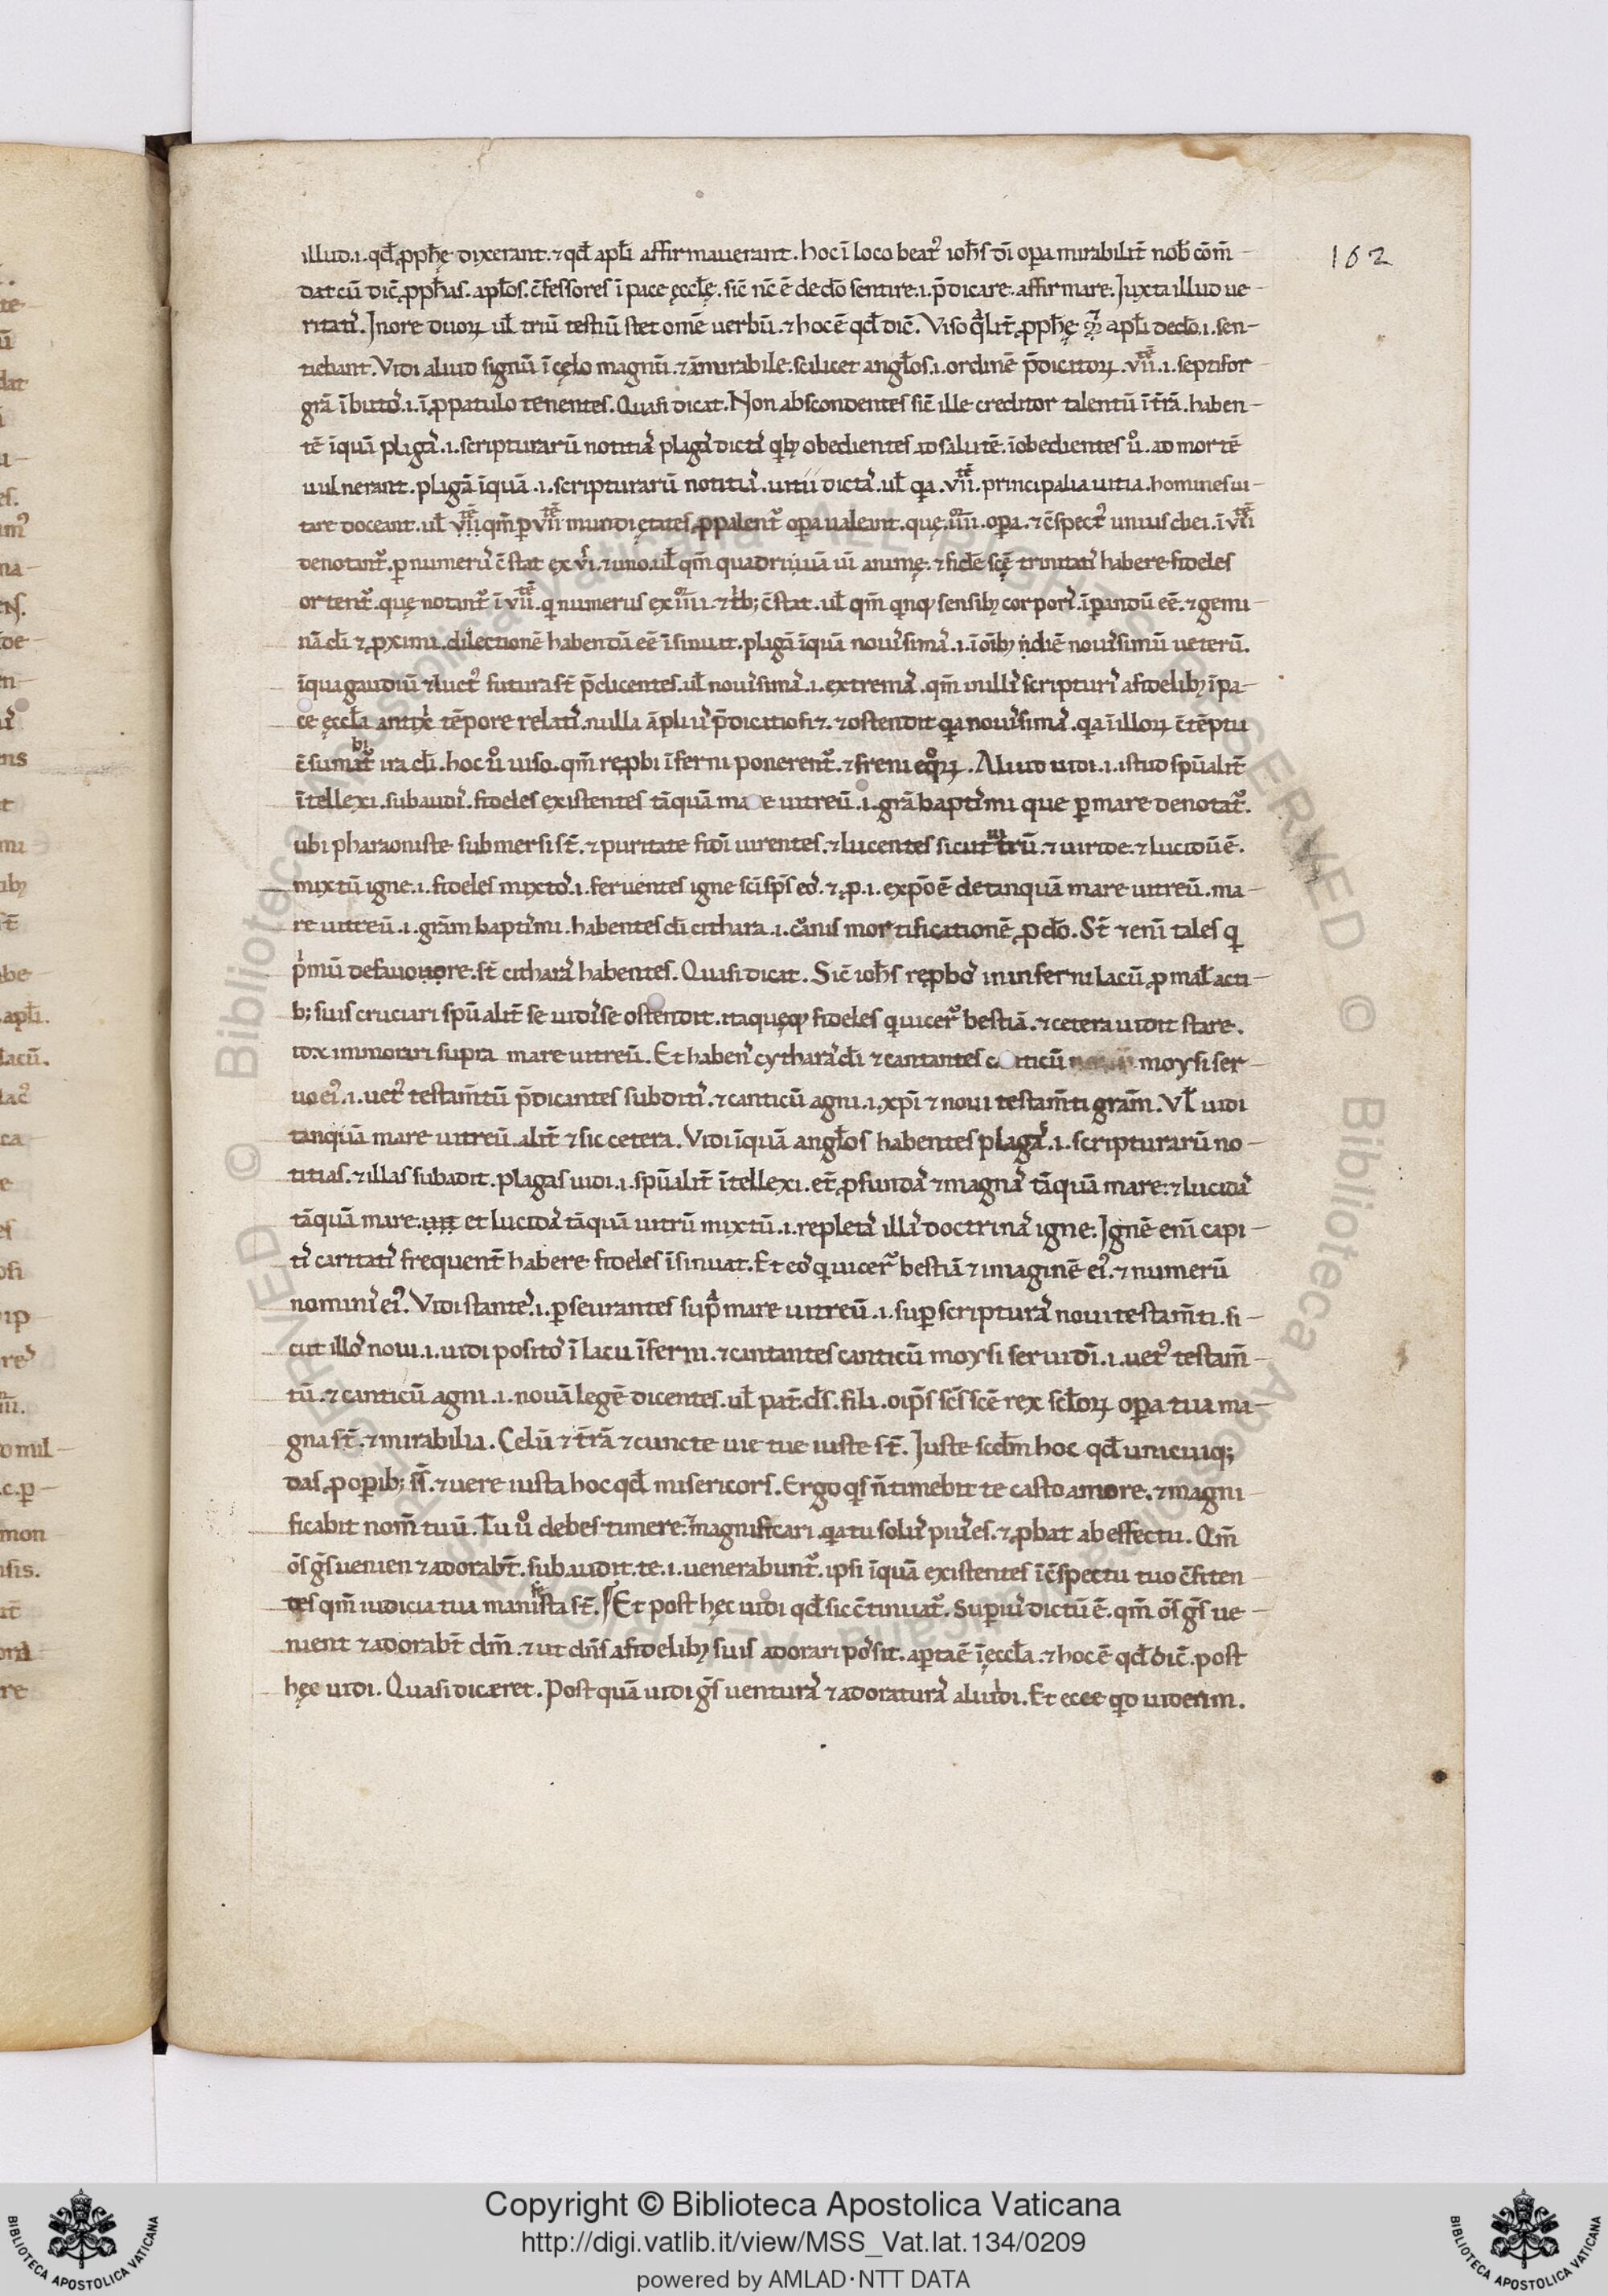 illud .i. qd̄ ꝓph̄ę dixerant. ⁊ qd̄ apl̄i affirmauerant. hoc ī loco beat᷒ ioh̄s dī oꝑa mirabilit̄ nob̄ cōm̄-
dat cū dic̄ ꝓph̄as. apl̄os. c̄fessores ī pace ęccl̄ę. sic̄ nc̄ ē de dō sentire .i. p̄dicare. affirmare. Juxta illud ue-
ritati᷒. Jn ore duoꝝ ul̄ triū testiū stet om̄e uerbū. ⁊ hoc ē qd̄ dic̄. Viso qͣlit̄ ꝓph̄ę apl̄i de dō .i. sen-
tiebant. Vidi aliud signū ī cęlo magnū. ⁊ āmirabile. scilicet angl̄os .i. ordinē p̄dicatoꝝ. vii. .i. septifor
grā ībuto᷒ .i. ī ꝓpatulo tenentes. Quasi dicat. Non abscondentes sic̄ ille creditor talentū ī t̄rā. haben-
tē īquā plaga᷒ .i. scripturarū notitia᷒ plaga᷒ dicta᷒ qͥbꝫ obedientes ad salutē. īobedientes ů. ad mortē
uulnerant. plagā īquā .i. scripturarū notitia᷒. uitii dicta᷒. ul̄ qͣ. vii. principalia uitia. homines ui-
tare doceant. ul̄ vii qm̄ ꝑ vii mundi ętates ꝓpalent᷑ oꝑa ualeant. quę iiii. oꝑa. ⁊ c̄spect᷒ unius diei. ī vii
denotant᷑. ꝑ numerū c̄stat ex vi. ⁊ uno. ul̄ qm̄ quadriuuā uī animę. ⁊ fidē sc̄ę trinitati᷒ habere fideles
ortent᷑. quę notant᷑ ī vii. qͥ numerus ex iiii. ⁊ tͥbꝫ c̄stat. ul̄ qm̄ qͥnqꝫ sensibꝫ corpori᷒. īꝑandū eē. ⁊ gemi-
nā di ⁊ ꝓximi. dilectionē habendā eē īsinuat. plagā īquā noui᷒sima᷒ .i. ī oībꝫ n̄ diē noui᷒simū ueterū.
ī qua gaudiū ⁊ luct᷒ futura st̄ p̄dicentes. ul̄ noui᷒sima᷒ .i. extrema᷒. qm̄ nulli᷒ scripturi᷒ a fidelibꝫ ī pa-
ce ęccl̄a antixͥ tēpore relati᷒. nulla āpliu᷒ p̄dicatio fiet. ⁊ ostendit qͣ noui᷒sima᷒. qͣ ī illoꝝ c̄tēptu
c̄sumabit᷑ ira di. hoc ů uiso. qm̄ reꝓbi īferni ponerent᷑. ⁊ freni eqͦꝝ. Aliud uidi .i. istud spūalit̄
ītellexi. subaudi᷒. fideles existentes tāquā mare uitreū .i. grā bapti᷒mi que ꝑ mare denotat᷑.
ubi pharaoniste submersi st̄. ⁊ puritate fidī uirentes. ⁊ lucentes sicut uitrū. ⁊ uiride. ⁊ lucidū ē.
mixtū igne .i. fideles mixto᷒ .i. feruentes igne sc̄i sp̄s eo᷒. ⁊ ꝓ .i. expōē de tanquā mare uitreū. ma-
re uitreū .i. grām bapti᷒mi. habentes di cithara .i. carnis mortificationē ꝓ dō. St̄ ⁊ enī tales qͥ
pͥmū de fauonore. st̄ cithara᷒ habentes. Quasi dicat. Sic̄ ioh̄s reꝓbo᷒ in inferni lacū ꝓ mal̄ acti-
bꝫ suis cruciari spūalit̄ se uidi᷒se ostendit. itaquęqꝫ fideles qͥ uicer̄ bestiā. ⁊ cetera uidit stare.
mare uitreū. Et haben᷒ cythara᷒ di ⁊ cantantes canticū moysi ser-
uo ei᷒ .i. uet᷒ testam̄tū p̄dicantes subditi᷒. ⁊ canticū agni .i. xp̄i ⁊ noui testam̄ti grām. Vl̄ uidi
tanquā mare uitreū. alit̄ ⁊ sic cetera. Vidi īquā angl̄os habentes plaga᷒ .i. scripturarū no-
titias. ⁊ illas subadit. plagas uidi .i. spūalit̄ ītellexi. et̄ ꝓfunda᷒ ⁊ magna᷒ tāquā mare. ⁊ lucida᷒
tāquā mare. uit et lucida᷒ tāquā uitrū mixtū .i. repleta᷒ illa᷒ doctrina᷒ igne. Jgnē enī capi-
ti᷒ caritati᷒ frequent̄ habere fideles īsinuat. Et eo᷒ qͥ uicer̄ bestiā ⁊ imaginē ei᷒. ⁊ numerū
nomini᷒ ei᷒. Vidi stante᷒ .i. ꝑseurantes supͣ mare uitreū .i. suꝑ scriptura᷒ noui testam̄ti. si-
cut illo᷒ noui .i. uidi posito᷒ ī lacu īferni. ⁊ cantantes canticū moysi serui dī .i. uet᷒ testam̄-
tū. ⁊ canticū agni .i. nouā legē dicentes. ul̄ pat̄. ds̄. fili. oip̄s sc̄s sc̄e rex scl̄oꝝ oꝑa tua ma-
gna st̄. ⁊ mirabilia. Celū ⁊ t̄rā ⁊ cuncte uie tue iuste st̄. Juste scdm̄ hoc qd̄ unicuiqꝫ
das ꝓ oꝑibꝫ ss̄. ⁊ uere iusta hoc qd̄ misericors. Ergo qͥs n̄ timebit te casto amore. ⁊ magni-
ficabit nom̄ tuū. Tu ů debes timere. ⁊ magnificari. qͣ tu solu᷒ piu᷒ es. ⁊ ꝓbat ab effectu. Qm̄
ōs gs̄ uenien ⁊ adorabt̄. subaudit. te .i. uenerabunt᷑. ipsi īquā existentes ī c̄spectu tuo c̄fiten-
tes qm̄ iudicia tua manifesta st̄. Et post hęc uidi qd̄ sic c̄tinuat᷑. Suꝑiu᷒ dictū ē. qm̄ ōs gs̄ ue-
nient ⁊ adorabt̄ dm̄. ⁊ ut dn̄s a fidelibꝫ suis adorari po᷒sit. aꝑta ē ī ęccl̄a. ⁊ hoc ē qd̄ dic̄. post
hęc uidi. Quasi dicæret. Postquā uidi gs̄ uentura᷒ ⁊ adoratura᷒ aliud uidi. Et ecce qͥd uiderim.
162
Copyright © Biblioteca Apostolica Vaticana
http://digi.vatlib.it/view/MSS_Vat.lat.134/0209
powered by AMLAD·NTT DATA